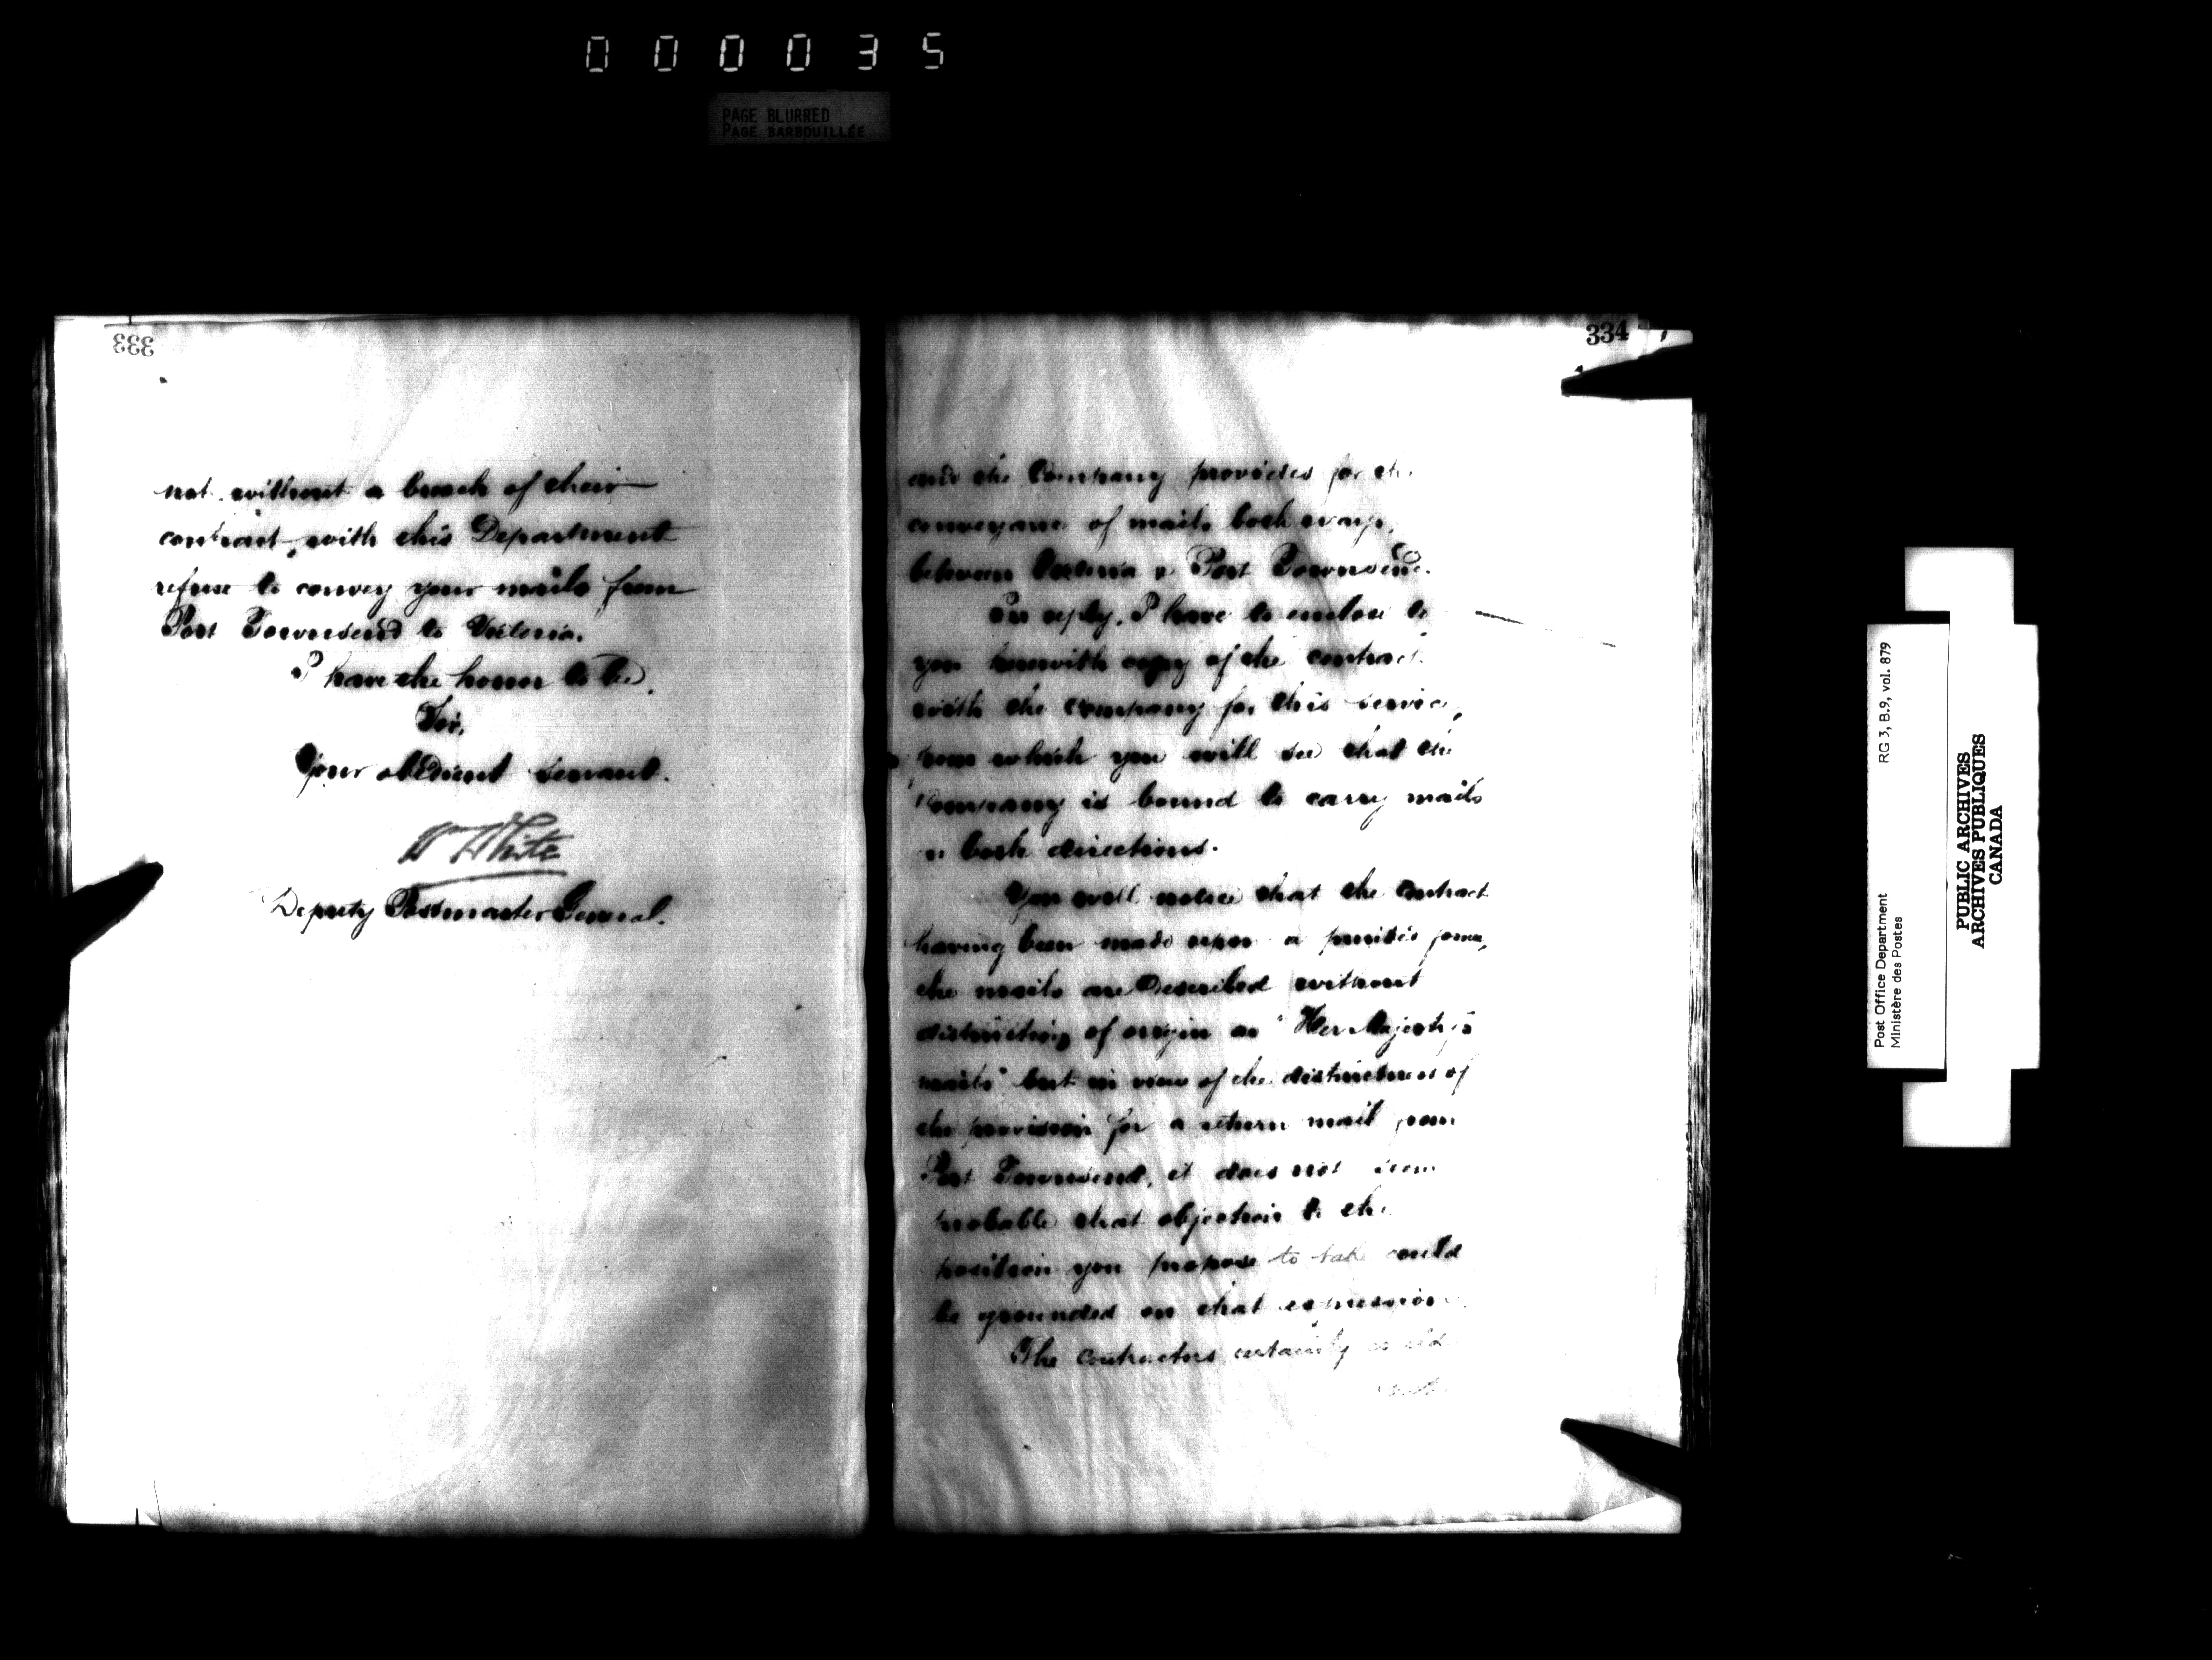 000035
PAGE BLURRED
PAGE BARBOUILLÉE
333
not without a breach of their
contract, with this Department
refuse to convey your mails from
Port Townsend to Victoria.
I have the honor to be,
Sir,
Your obedient servant.
Wm White
Deputy Postmaster General.
334
and the Company provides for the
conveyance of mails both ways,
between Victoria & Port Townsend.
In reply, I have to enclose to
you herewith copy of the contract
with the company for this service,
from which you will see that the
Company is bound to carry mails
in both directions.
You will notice that the contract
having been made upon a printed form,
the mails are described without
distinction of origin as "Her Majesty's
mails" but in view of the distinctness of
the provision for a return mail from
Port Townsend, it does not seem
probable that objection to the
position you propose to take could
be grounded on that expression
The contractors certainly could
Post Office Department
Ministère des Postes
RG 3, B.9, vol. 879
PUBLIC ARCHIVES
ARCHIVES PUBLIQUES
CANADA